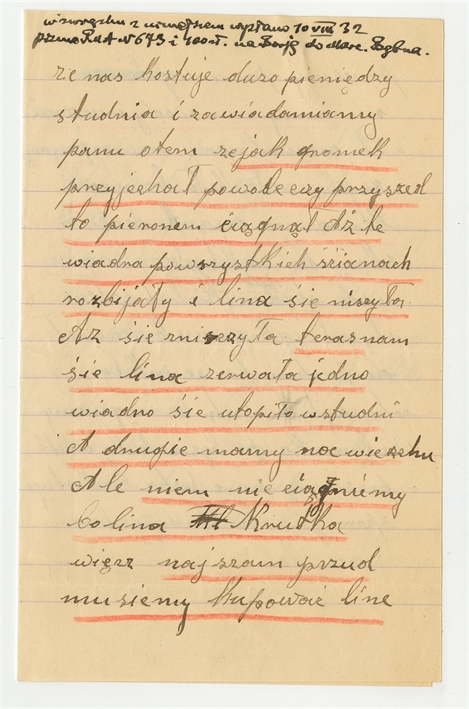 w związku z niniejszem wysłano 10 VIII 32
pismo R.d.A N 673 i 100 zł. na Boryg do Marc. Zgbna.
ze nas kostuje duzo pieniędzy
studnia i zawiadamiamy
panu otem ze jak gromek
przyjechał powode czy przyszed
to pieronem ciągnął Aż te
wiadra powszystkich ścianach
rozbijały i lina się niszyła
Aż się zniszyła teras nam
się lina zerwała jedno
wiadno sie utopiło w studni
A drugie mamy na wieszchu
Ale niem nie ciągnimy
bo lina Krutka
więsz najszam przud
musiemy kupować line